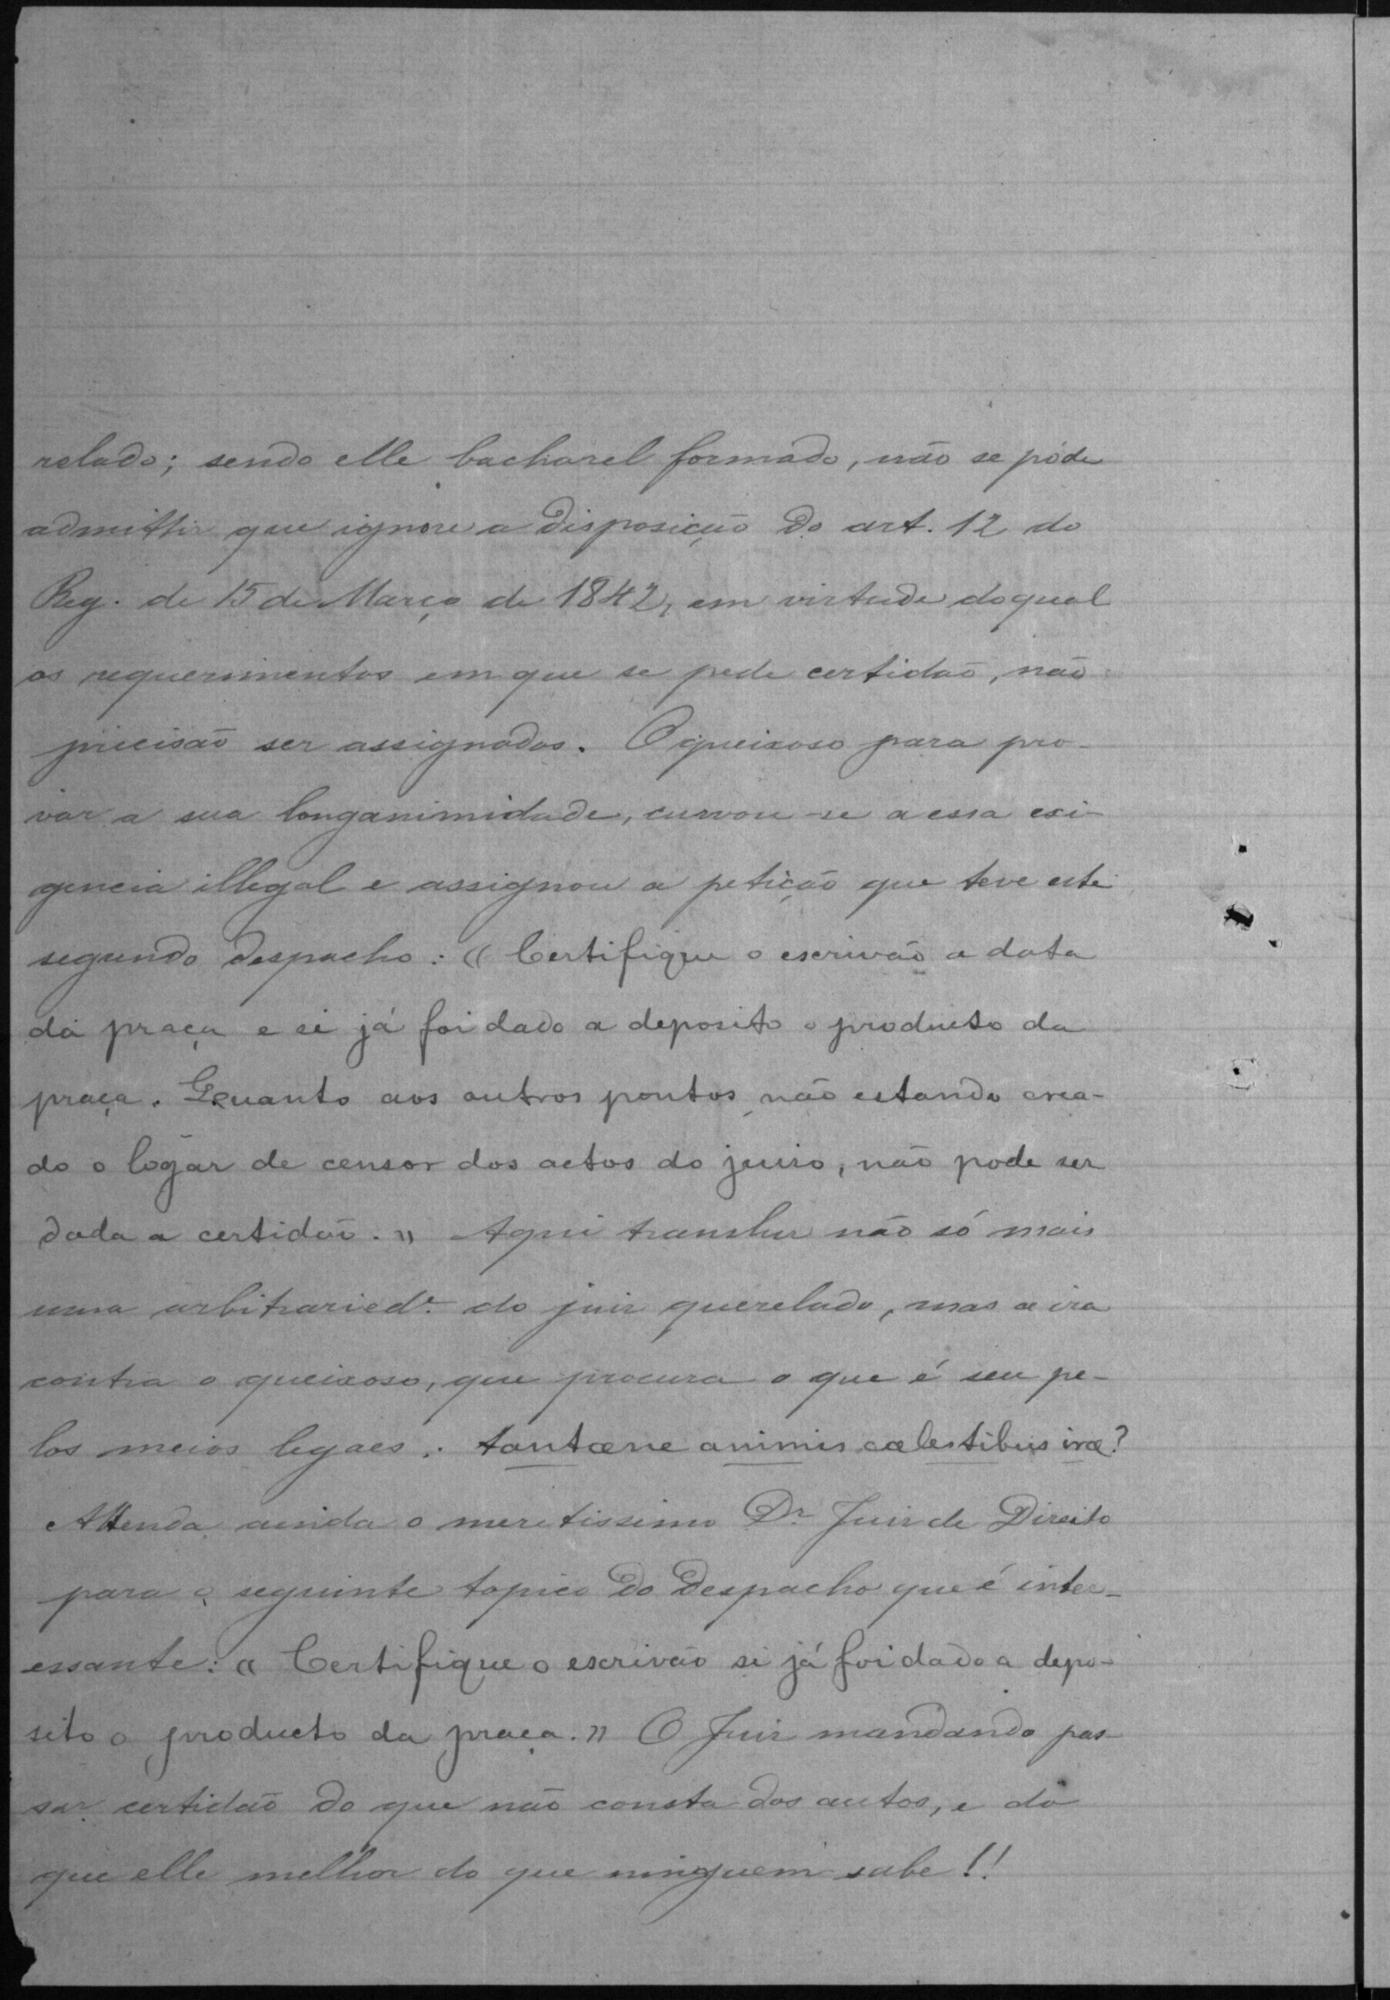 relado; sendo elle bacharel formado, não se póde
admittir que ignore a disposição do art. 12 do
Reg. de 15 de Março de 1842, em virtude do qual
os requerimentos em que se pede certidão, não
precisão ser assignados. O queixoso para pro-
var a sua longanimidade, curvou-se a essa exi-
gencia illegal e assignou a petição que teve este
segundo despacho: « Certifique o escrivão a data
da praça e si já foi dado a deposito o producto da
praça. Quanto aos outros pontos, não estando crea-
do o logar de censor dos actos do juizo, não pode ser
dada a certidão. » Aqui transluz não só mais
uma arbitraried.e do juiz querelado, mas a ira
contra o queixoso, que procura o que é seu pe-
los meios legaes: tantæne animis cœlestibus iræ?
Attenda ainda o meretissimo Dr. Juiz de Direito
para o seguinte topico do despacho que é inter-
essante: « Certifique o escrivão si já foi dado a depo-
sito o producto da praça. » O Juiz mandando pas-
sar certidão do que não consta dos autos, e do
que elle melhor do que ninguem sabe!!